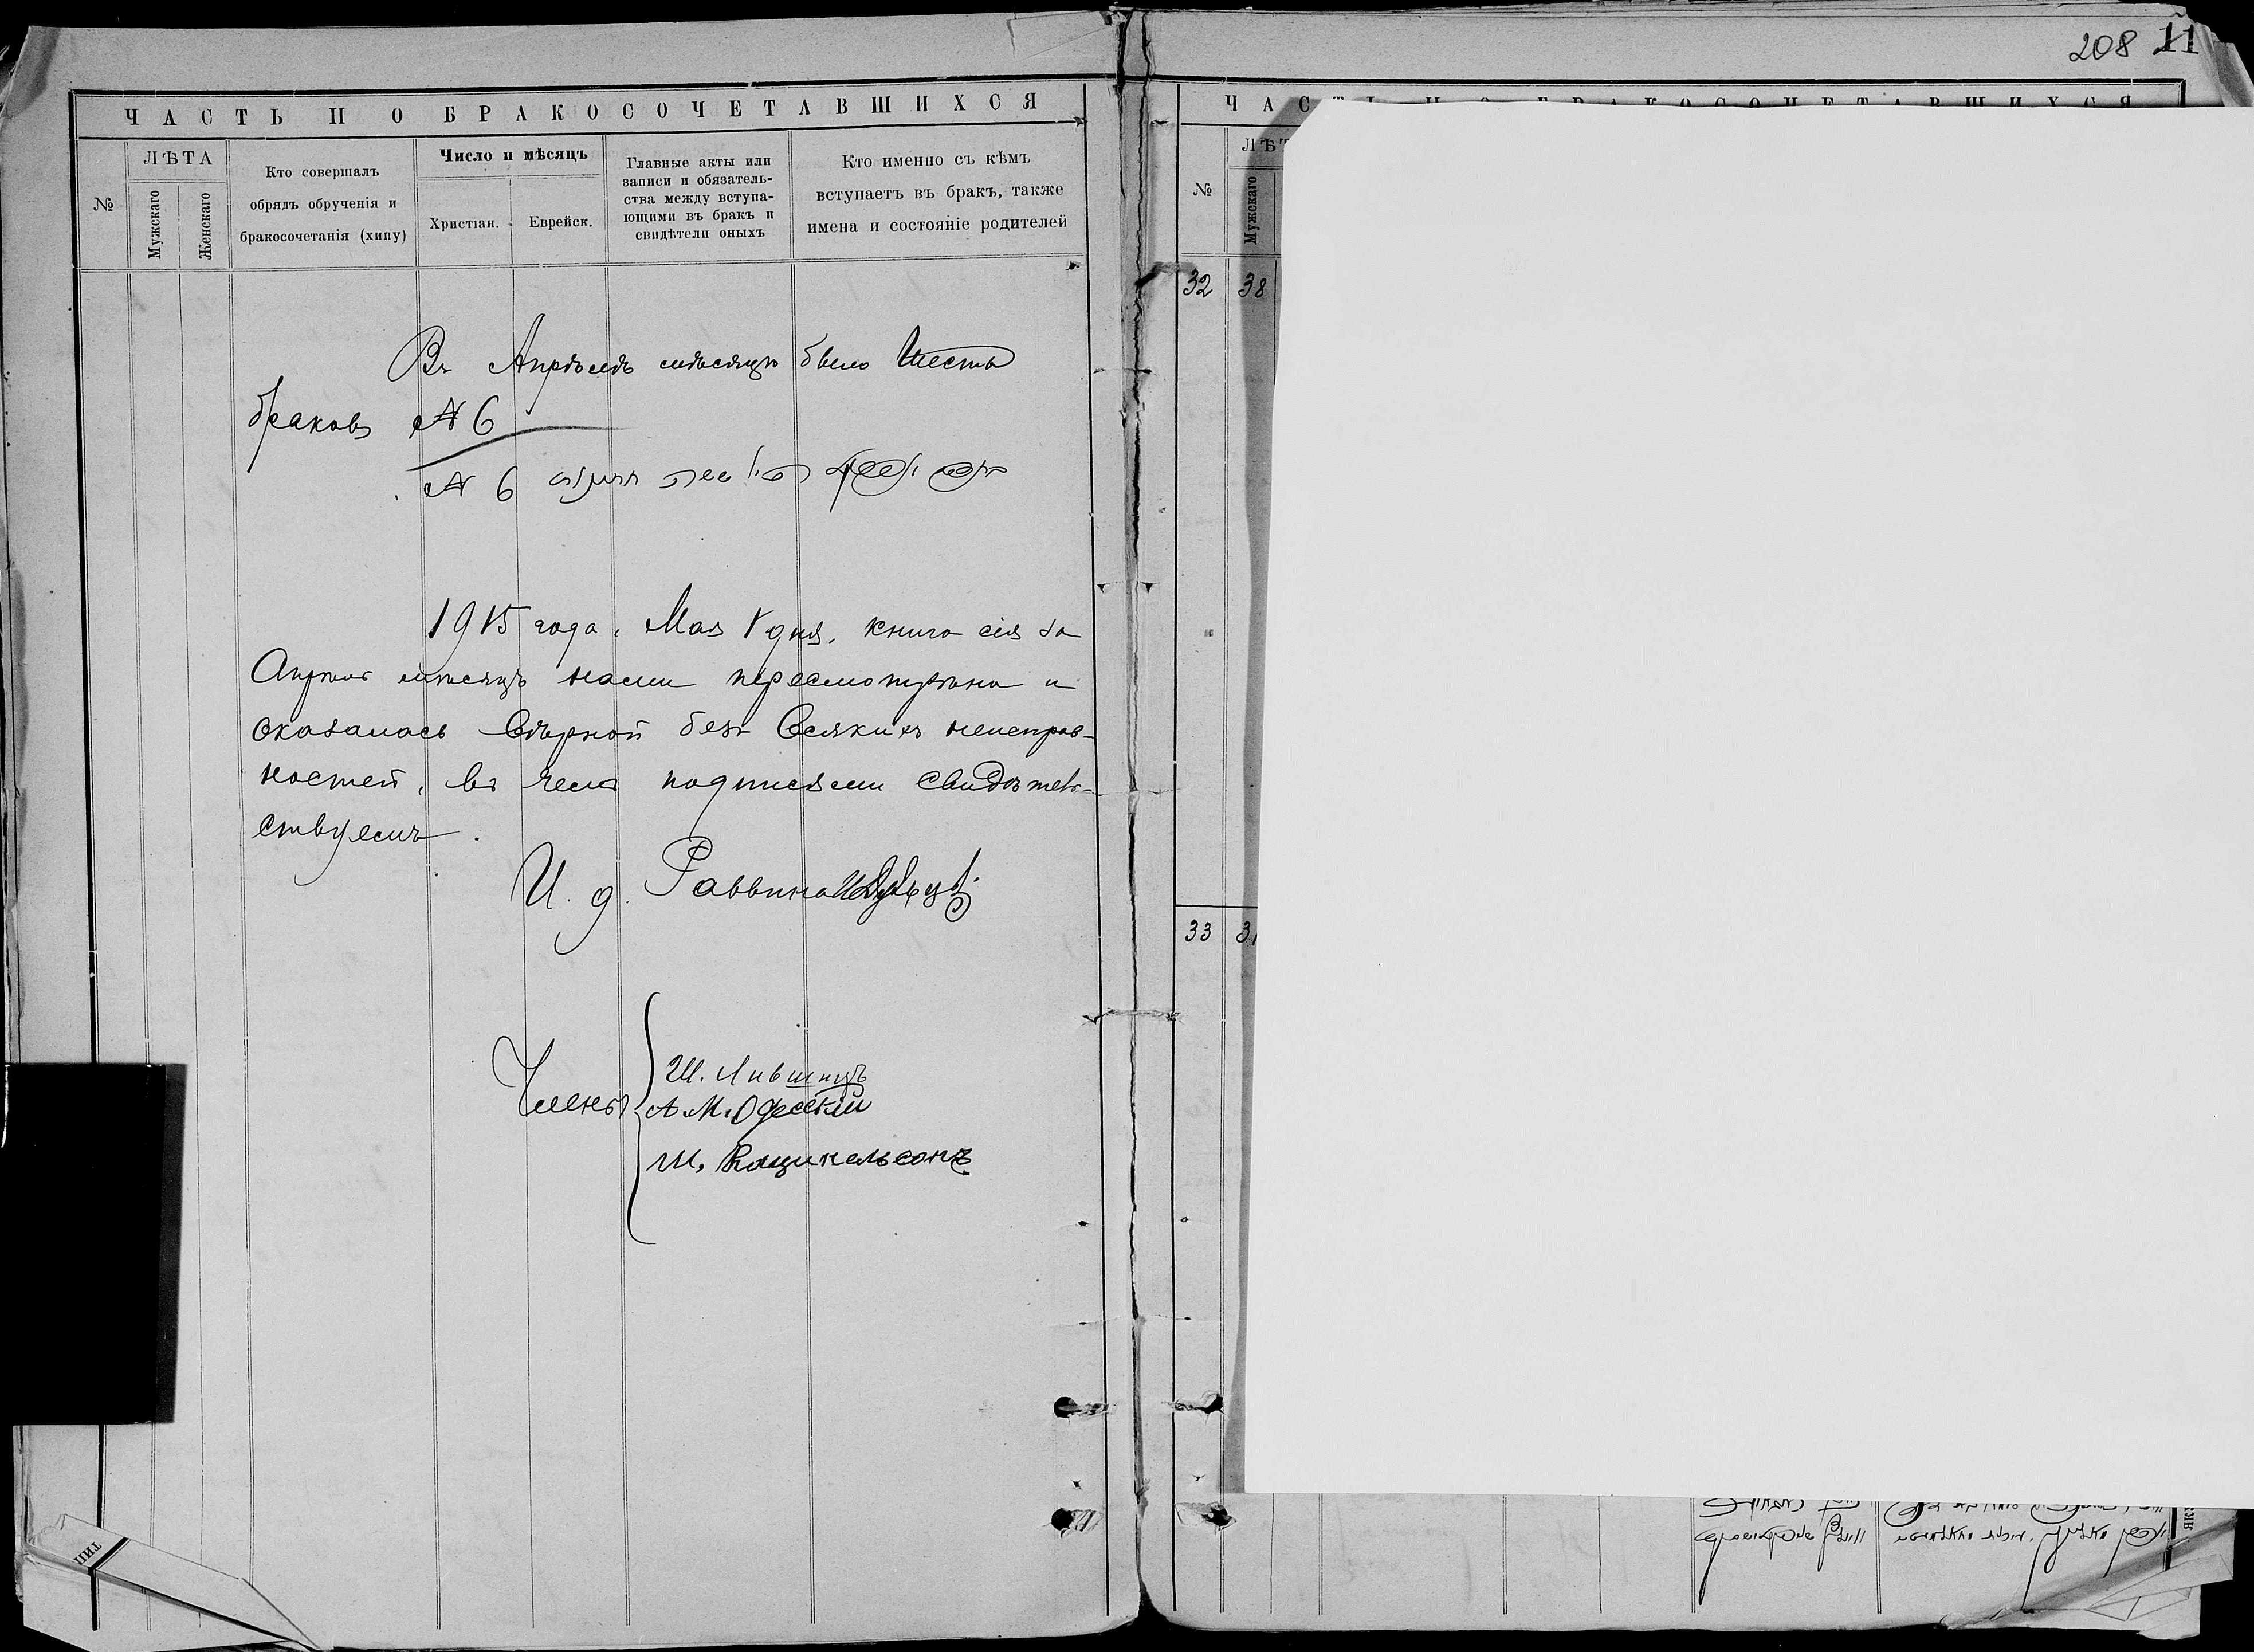 208 11
ЧАСТЬ II О БРАКОСОЧЕТАВШИХСЯ
№
ЛѢТА
Мужскаго
Женскаго
Кто совершалъ
обрядъ обрученія и
бракосочетанія (хипу)
Число и мѣсяцъ
Христіан.
Еврейск.
Главные акты или
записи и обязатель-
ства между вступа-
ющими въ бракъ и
свидѣтели оныхъ
Кто именно съ кѣмъ
вступаетъ въ бракъ, также
имена и состояніе родителей
Въ Апрѣлѣ мѣсяцѣ было Шесть
браковъ № 6
№ 6
1915 года, Мая 1 дня, книга сія за
Апрѣль мѣсяцъ нами пересмотрѣна и
оказалась вѣрной безъ всякихъ неисправ-
ностей, въ чемъ подписями свидѣтель-
ствуемъ.
И. д. Раввина
Члены
Ш. Лившицъ
А. М. Одесскій
Ш. Кацнельсонъ
ЧАС
№
Мужскаго
32 38
33 31
ТИП